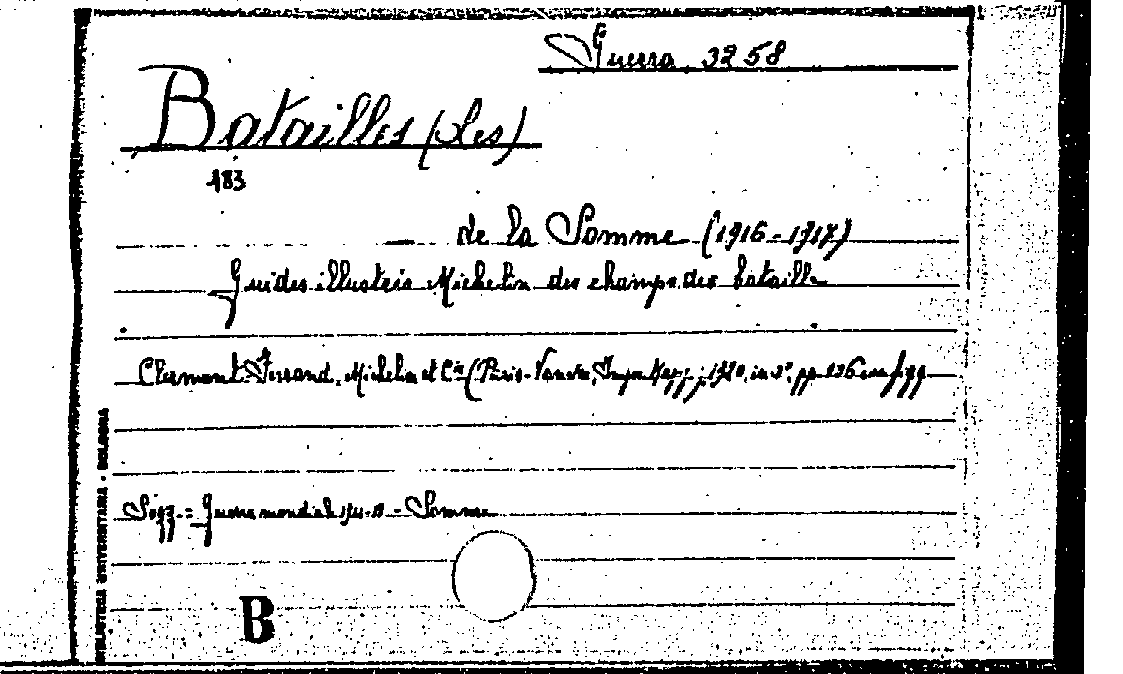 Guerra 3258
Batailles (Les)
183
de la Somme (1916-1917)
Guides illustrés Michelin des champs des bataille
Clermont-Ferrand, Michelin et Cie (Paris-Vanves, Impr. Kapp), 1920, in 2°, pp. 136 con figg
Sogg. = Guerra mondiale 1914-18 - Somme
BIBLIOTECA UNIVERSITARIA - BOLOGNA
B